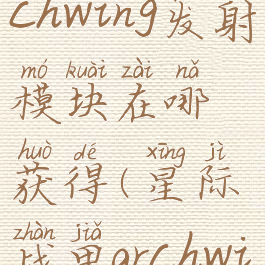 chwing发射
mó kuài zài nǎ
模块在哪
huò dé xīng jì
获得(星际
zhàn jiǎ
战甲archwi